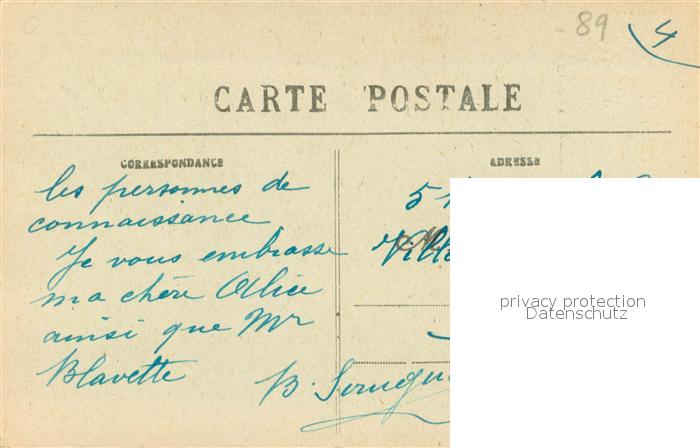 89
4
CARTE POSTALE
CORRESPONDANCE
ADRESSE
les personnes de
connaissance
Je vous embrasse
ma chère Alice
ainsi que Mr
Blavette
B.
51
privacy protection
Datenschutz